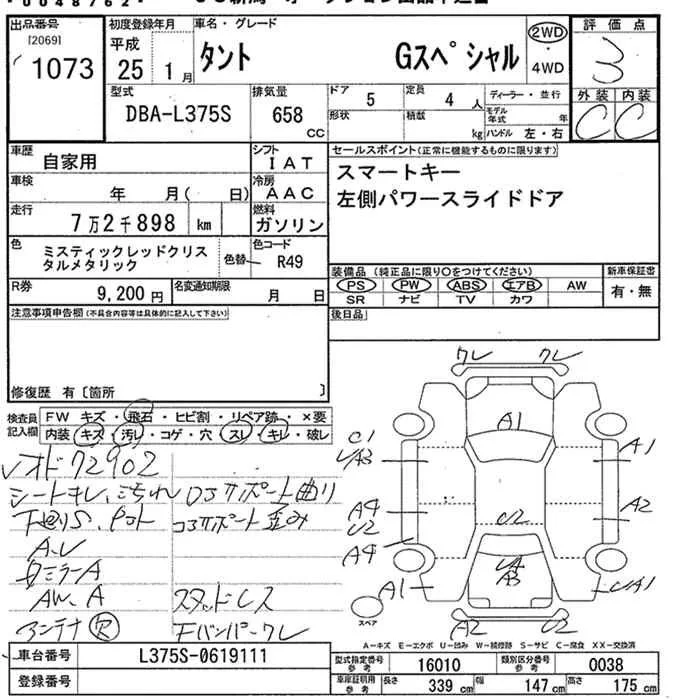 出品番号 [2069] 1073
初度登録年月 平成 25 1月
車名・グレード タント Gスペシャル
2WD・4WD
評価点 3
型式 DBA-L375S
排気量 658 CC
ドア 5 定員 4 人
形状 積載 kg
ディーラー・並行
モデル年式 年
ハンドル 左・右
外装 内装
C C
車歴 自家用
シフト IAT
車検 年 月( 日)
冷房 AAC
走行 7万2千898 km
燃料 ガソリン
色 ミスティックレッドクリスタルメタリック
色替
色コード R49
R券 9,200円
名変通知期限 月 日
セールスポイント(正常に機能するものに限ります)
スマートキー
左側パワースライドドア
装備品 (純正品に限り○をつけてください)
PS PW ABS エアB AW
SR ナビ TV カワ
新車保証書 有・無
後日品
注意事項申告欄(不具合内容等は具体的に記入して下さい)
修復歴 有〔箇所 〕
検査員記入欄
FW キズ・飛石・ヒビ割・リペア跡・×要
内装 キズ・汚レ・コゲ・穴・スレ・キレ・破レ
72902
シートキレ、
A
AW、A
アンテナ 欠
スタッドレス
Fバンパークレ
クレ クレ
A1
C1
A1
A4
U2
A2
A4
U2
A1
UA1
A2 C2
スペア
A−キズ E−エクボ U−凹み W−補修跡 S−サビ C−腐食 XX−交換済
車台番号 L375S-0619111
登録番号
型式指定番号 参考 16010
類別区分番号 参考 0038
車庫証明用 参考 長さ 339 cm 幅 147 cm 高さ 175 cm